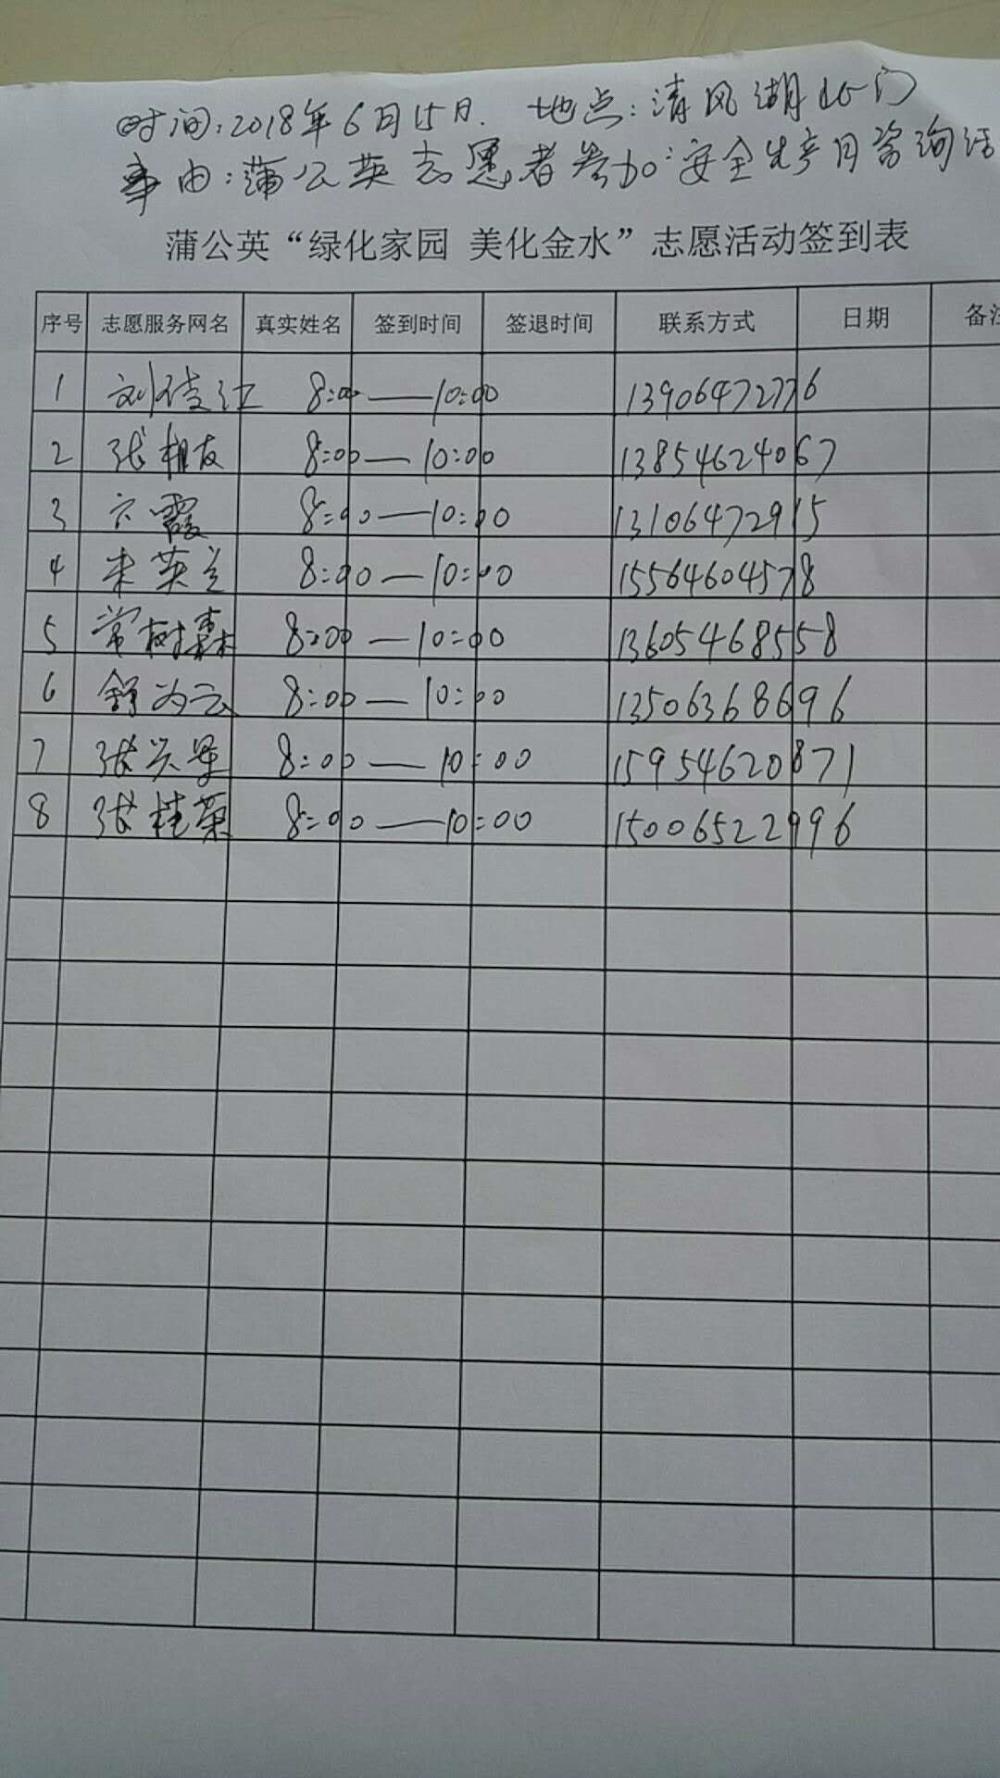 时间:2018年6月15日. 地点:清风湖北门
事由:蒲公英志愿者参加:安全生产月咨询活
蒲公英“绿化家园 美化金水”志愿活动签到表
序号 志愿服务网名 真实姓名 签到时间 签退时间 联系方式 日期 备注
1 刘 江 8:00—10:00 13906472776
2 张相友 8:00—10:00 13854624067
3 霞 8:00—10:00 13106472915
4 朱英兰 8:00—10:00 15564604578
5 常树森 8:00—10:00 13605468558
6 为云 8:00—10:00 13506368696
7 张 8:00—10:00 15954620871
8 张桂菊 8:00—10:00 15006522996